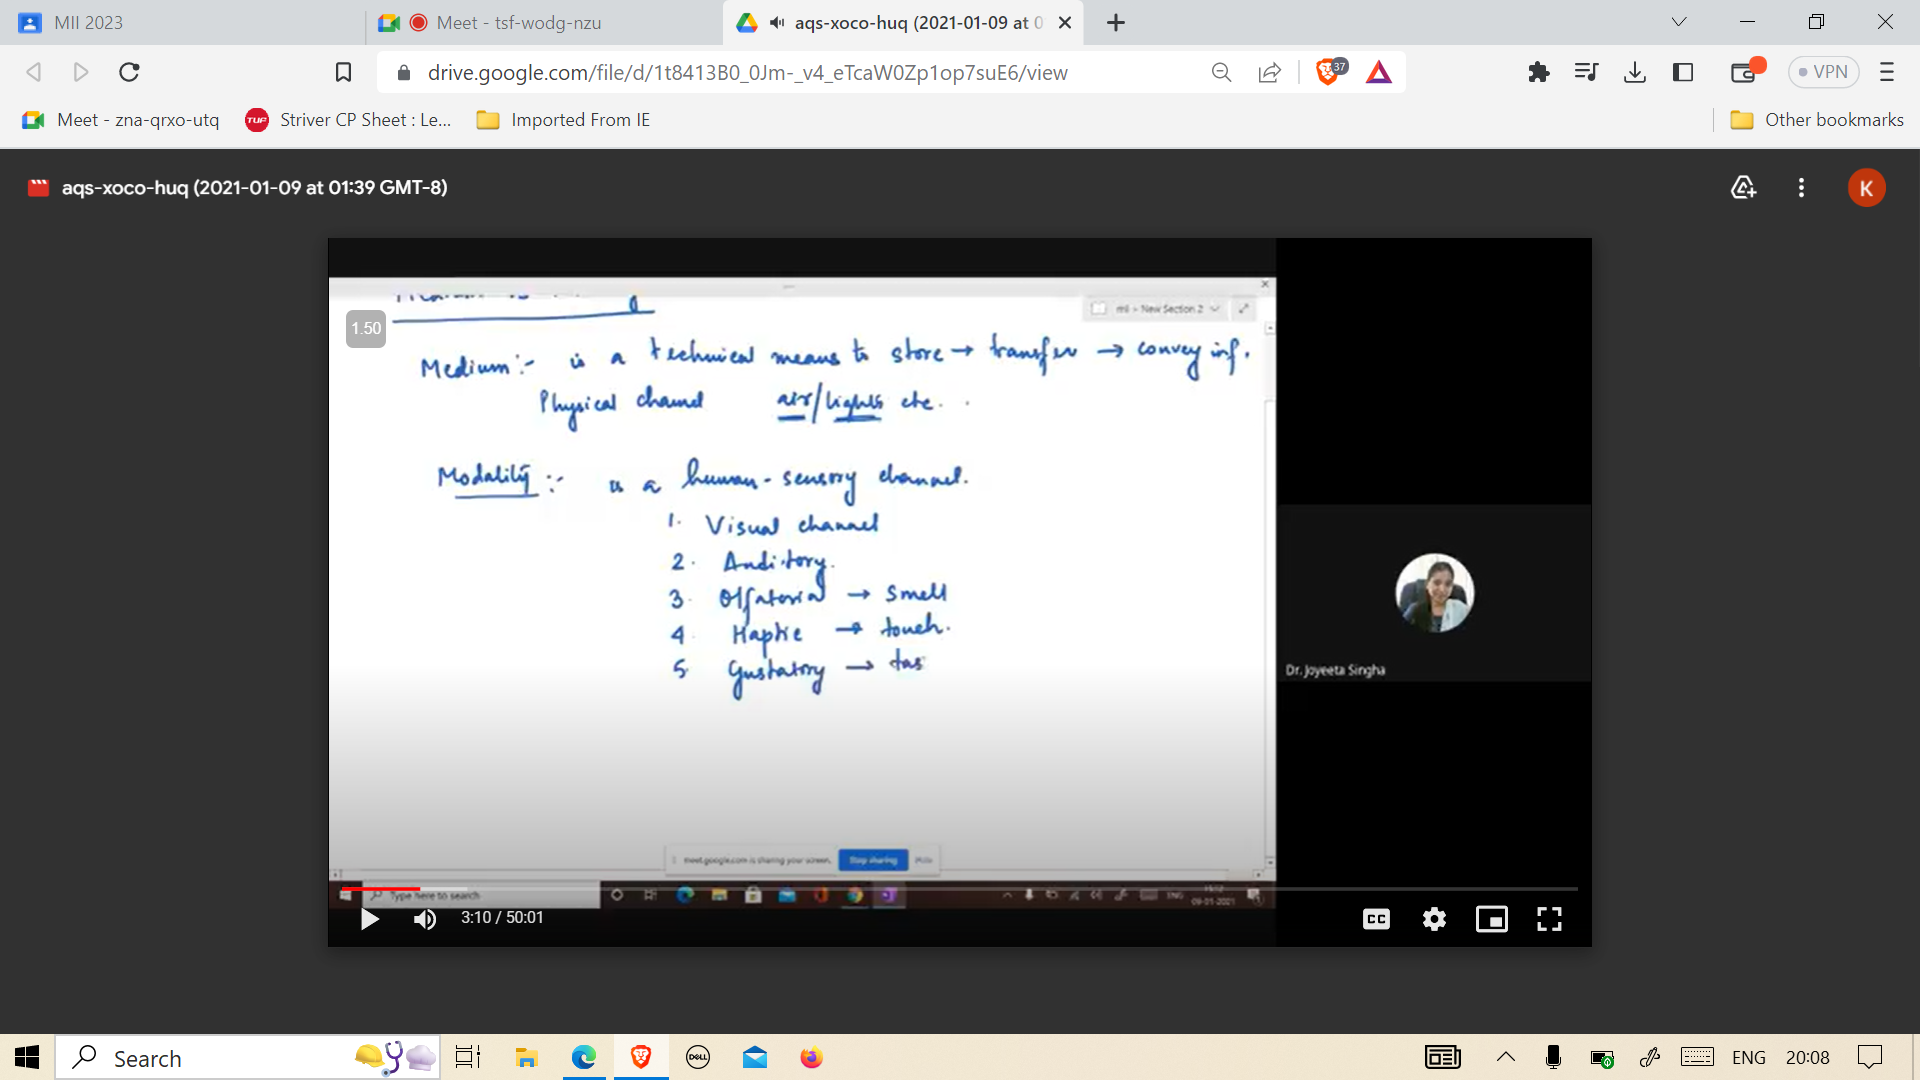 MII 2023
Meet - tsf-wodg-nzu
aqs-xoco-huq (2021-01-09 at 0
drive.google.com/file/d/1t8413B0_0Jm-_v4_eTcaW0Zp1op7suE6/view
37
VPN
Meet - zna-qrxo-utq
TUF
Striver CP Sheet : Le...
Imported From IE
Other bookmarks
aqs-xoco-huq (2021-01-09 at 01:39 GMT-8)
K
1.50
mii > New Section 2
Medium :- is a technical means to store → transfer → convey inf.
Physical channel air/lights etc.
Modality :- is a human-sensory channel.
1. Visual channel
2. Auditory.
3. Olfatorial → smell
4. Haptic → touch.
5 Gustatory → tas
Dr. Joyeeta Singha
meet.google.com is sharing your screen. Stop sharing Hide
Type here to search
ENG
09-01-2021
3:10 / 50:01
CC
Search
DELL
ENG
20:08